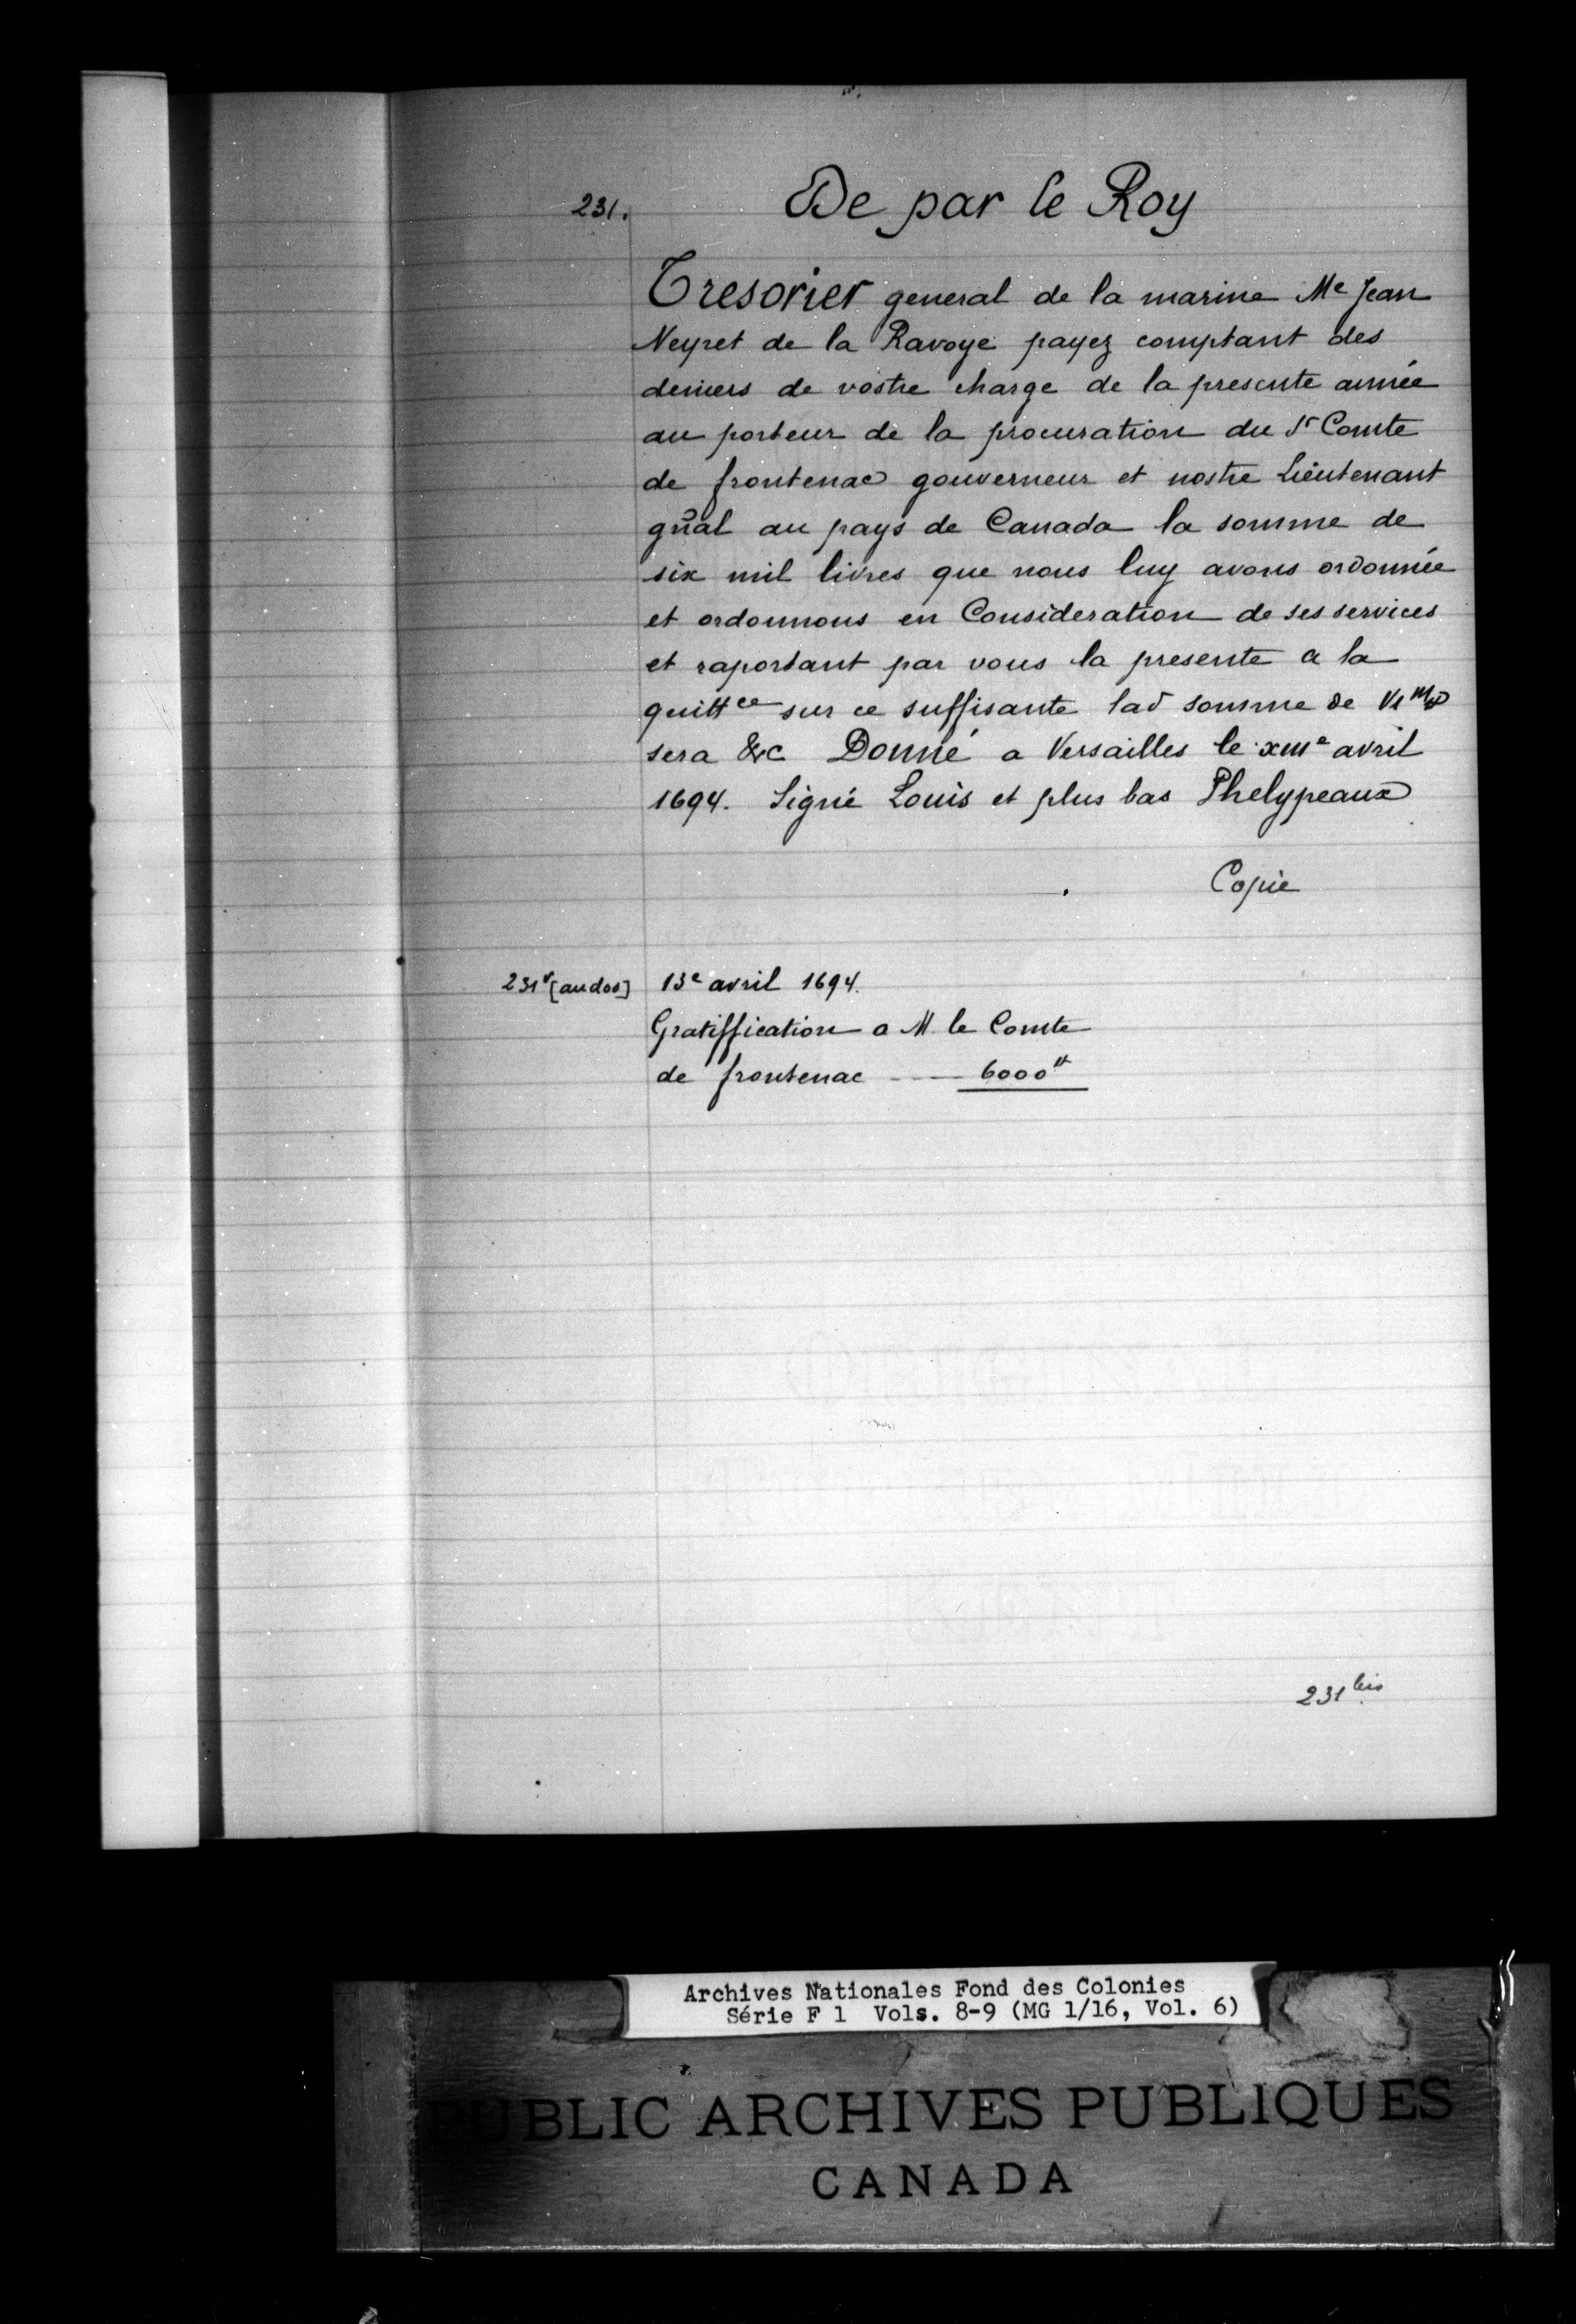 231.
De par le Roy
Tresorier general de la marine Me Jean
Neyret de la Ravoye payez comptant des
deniers de vostre charge de la presente année
au porteur de la procuration du Sr Comte
de frontenac gouverneur et nostre Lieutenant
gñal au pays de Canada la somme de
six mil livres que nous luy avons ordonnée
et ordonnons en Consideration de ses services
et raportant par vous la presente a la
quittce sur ce suffisante lad somme de VIm#
sera &c Donné a Versailles le xiiie avril
1694. Signé Louis et plus bas Phelypeaux
Copie
231v [au dos] 13e avril 1694.
Gratiffication a M le Comte
de frontenac ---- 6000#
231bis
Archives Nationales Fond des Colonies
Série F 1 Vols. 8-9 (MG 1/16, Vol. 6)
PUBLIC ARCHIVES PUBLIQUES
CANADA